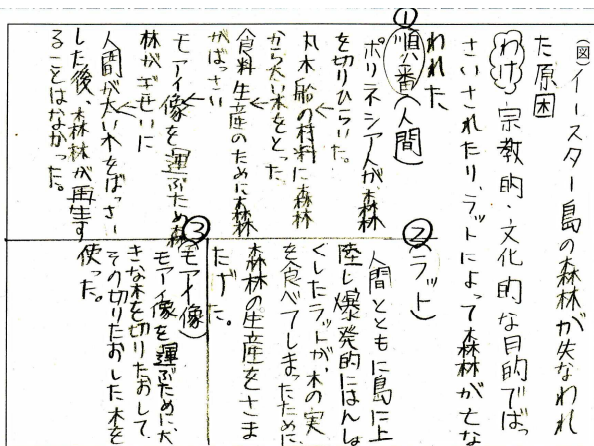 (図)イースター島の森林が失なわれ
た原因
わけ 宗教的・文化的な目的でばっ
さいされたり、ラットによって森林が亡な
われた
①順番(人間)
ポリネシア人が、森林
を切りひらいた。
丸木船の材料に森林
から太い木をとった。
食料生産のために森林
がばっさい
モアイ像を運ぶため森
林がぎせいに
人間が太い木をばっさい
した後、森林が再生す
ることはなかった。
②(ラット)
人間とともに島に上
陸し爆発的にはんしょ
くしたラットが、木の実
を食べてしまったために、
森林の生産をさま
たげた。
③(モアイ像)
モアイ像を運ぶために、大
きな木を切りたおして、
その切りたおした木を
使った。